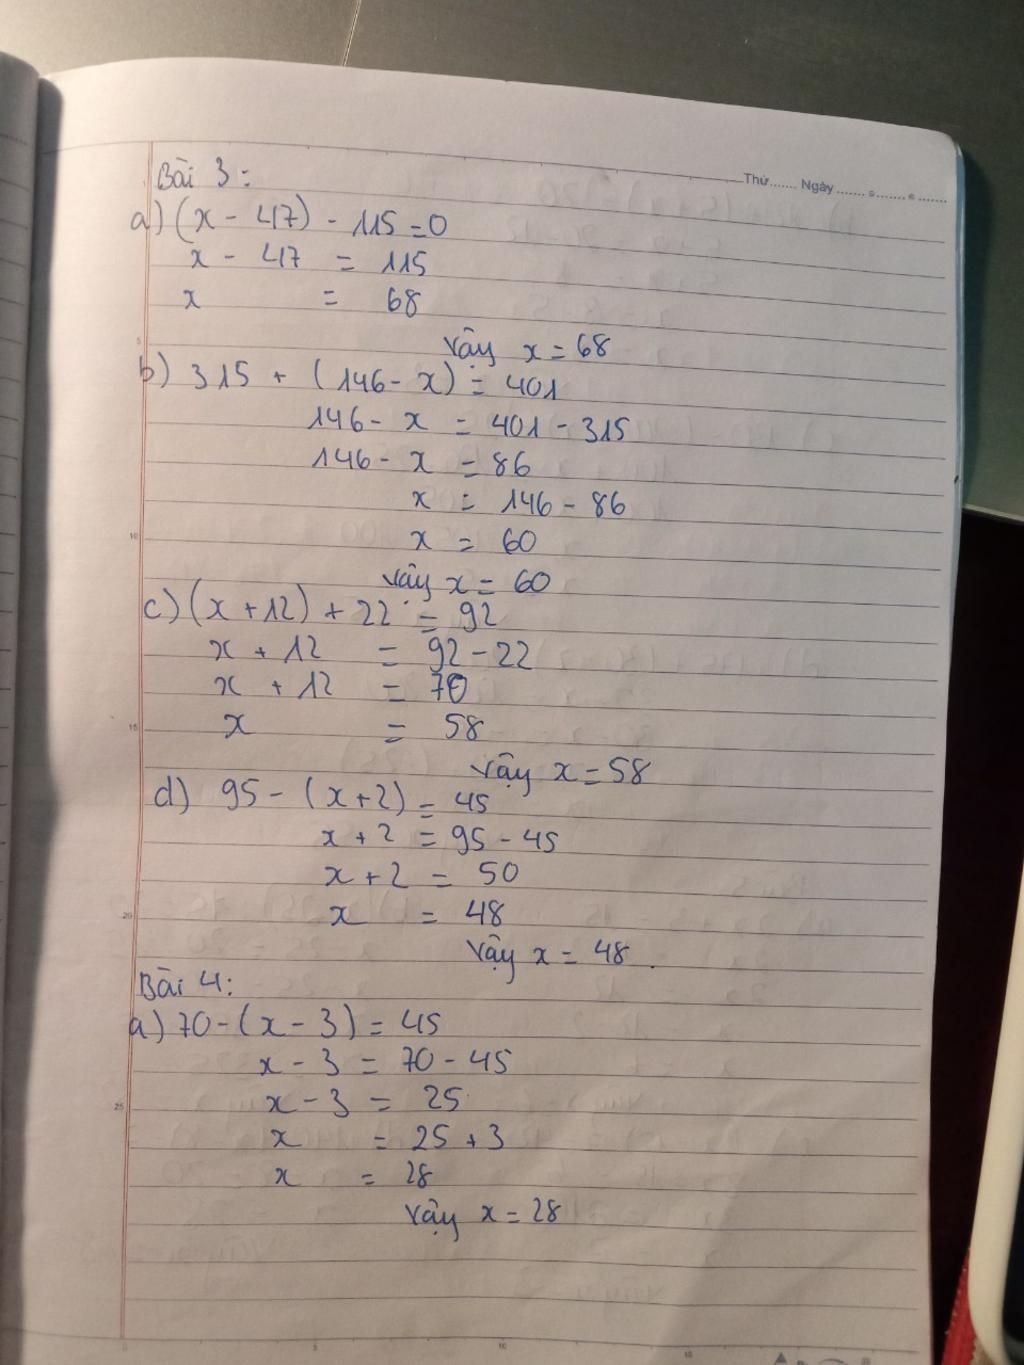 Thứ....... Ngày ....... s....... c .......
Bài 3:
a) (x - 47) - 115 = 0
x - 47 = 115
x = 68
Vậy x = 68
b) 315 + (146 - x) = 401
146 - x = 401 - 315
146 - x = 86
x = 146 - 86
x = 60
Vậy x = 60
c) (x + 12) + 22 = 92
x + 12 = 92 - 22
x + 12 = 70
x = 58
Vậy x = 58
d) 95 - (x + 2) = 45
x + 2 = 95 - 45
x + 2 = 50
x = 48
Vậy x = 48.
Bài 4:
a) 70 - (x - 3) = 45
x - 3 = 70 - 45
x - 3 = 25
x = 25 + 3
x = 28
Vậy x = 28